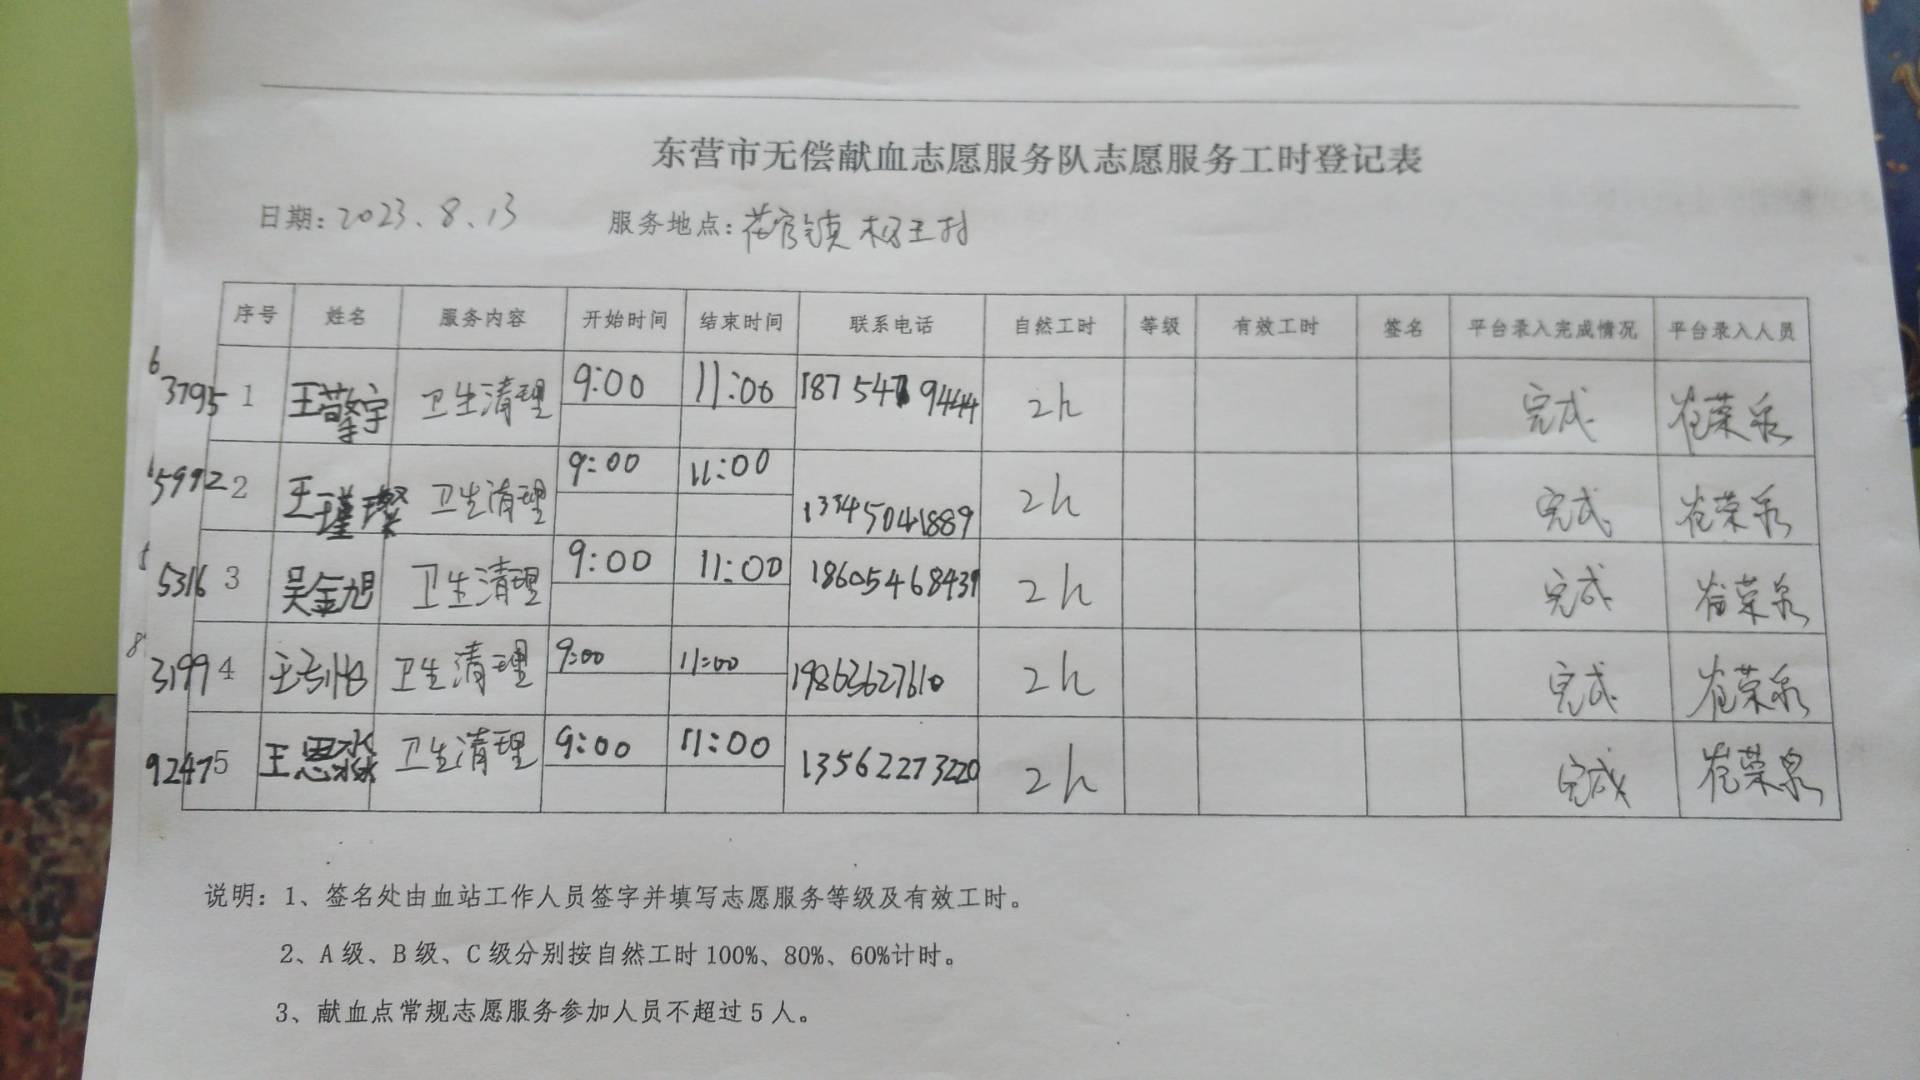 东营市无偿献血志愿服务队志愿服务工时登记表
日期: 2023.8.13 服务地点: 花官镇杨王村
序号 姓名 服务内容 开始时间 结束时间 联系电话 自然工时 等级 有效工时 签名 平台录入完成情况 平台录入人员
6 3795 1 王擎宇 卫生清理 9:00 11:00 2h 完成 崔荣泉
5992 2 王瑾璨 卫生清理 9:00 11:00 2h 完成 崔荣泉
5316 3 吴金旭 卫生清理 9:00 11:00 18605468439 2h 完成 崔荣泉
8 3199 4 卫生清理 9:00 11:00 19863627610 2h 完成 崔荣泉
9247 5 王思淼 卫生清理 9:00 11:00 13562273220 2h 完成 崔荣泉
说明：1、签名处由血站工作人员签字并填写志愿服务等级及有效工时。
2、A级、B级、C级分别按自然工时100%、80%、60%计时。
3、献血点常规志愿服务参加人员不超过5人。